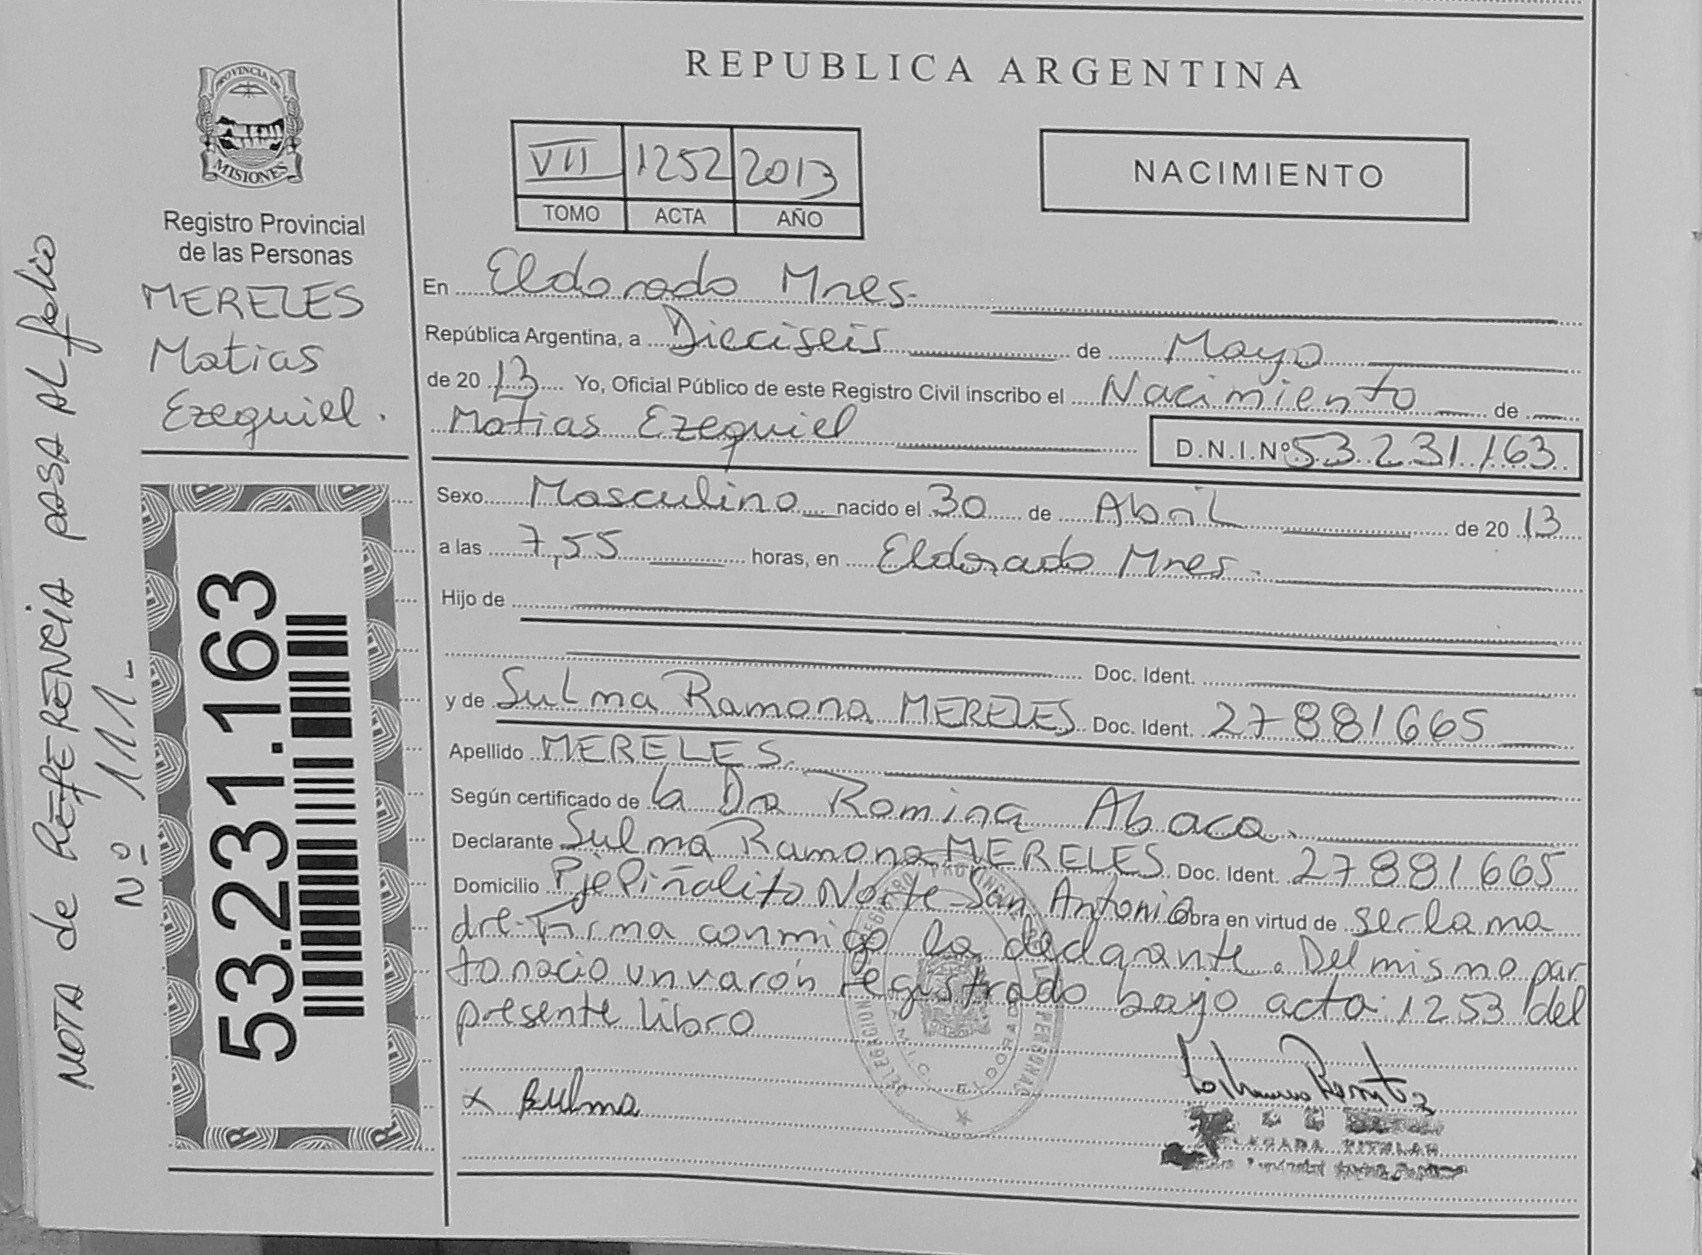 REPUBLICA ARGENTINA
PROVINCIA DE
MISIONES
Registro Provincial
de las Personas
MERELES
Matias
Ezequiel.
53.231.163
NOTA de REFERENCIA PASA AL folio
Nº 111.-
VII 1252 2013
TOMO ACTA AÑO
NACIMIENTO
En Eldorado Mnes.
República Argentina, a Dieciseis de Mayo
de 20 13 Yo, Oficial Público de este Registro Civil inscribo el Nacimiento de
Matias Ezequiel D.N.I.Nº 53.231.163
Sexo Masculino nacido el 30 de Abril de 20 13
a las 7,55 horas, en Eldorado Mnes.
Hijo de
Doc. Ident.
y de Sulma Ramona MERELES Doc. Ident. 27881665
Apellido MERELES.
Según certificado de la Dra Romina Abaca.
Declarante Sulma Ramona MERELES Doc. Ident. 27881665
Domicilio Pje Piñalito Norte-San Antonio Obra en virtud de ser la ma
dre-Firma conmigo la declarante. Del mismo par
to nacio un varón registrado bajo acta: 1253 del
presente libro
x Sulma
TITULAR